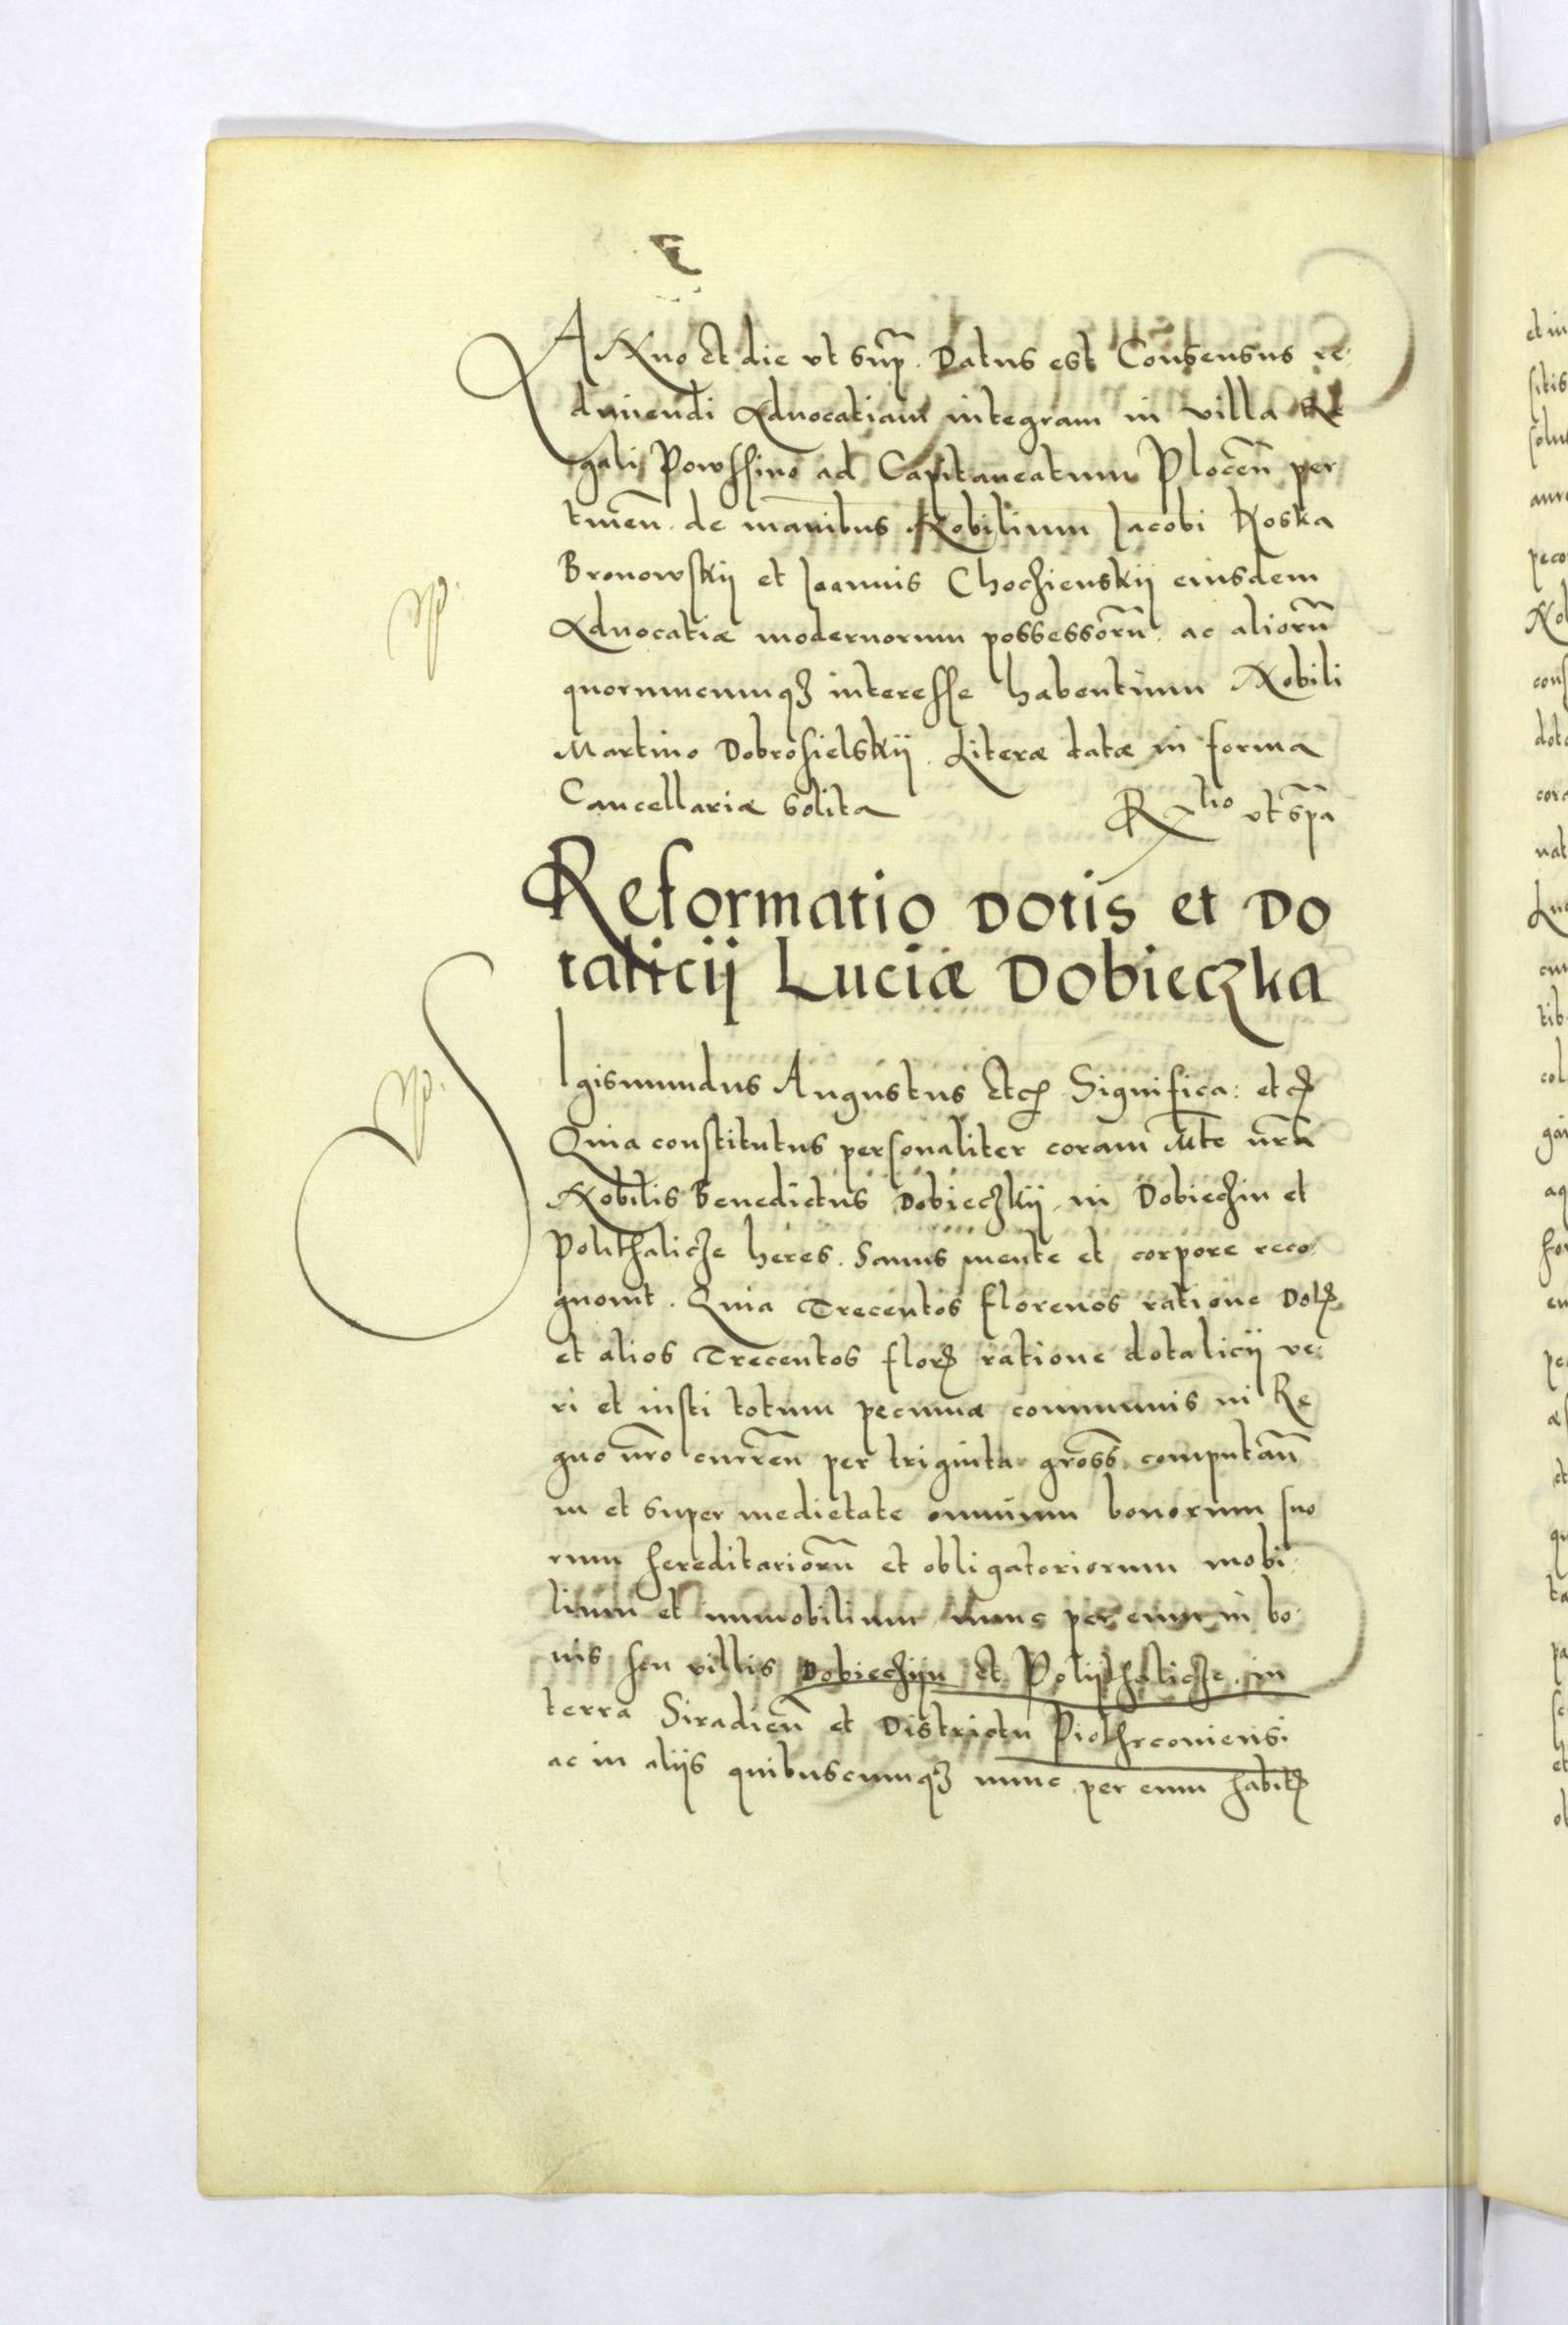 ANno et die vt sup. Datus est Consensus re
dimendi Aduocatiam integram in villa Re
gali Powssino ad Capitaneatum Plocen per
tinen. de manibus Nobilium Jacobi Koska
Bronowskij et Joannis Chochienskij eiusdem
Aduocatiæ modernorum possessorũ. ac aliorũ
quorumcumqꝫ interesse habentium Nobili
Martino Dobrosielskij. Literæ datæ in forma
Cancellariæ solita
Rtio vt spa
Reformatio dotis et do
talicij Luciæ Dobieczka
Sigismundus Augustus Etc. Significa: etc
Quia constitutus personaliter coram Mte nr̃a
Nobilis Benedictus Dobieczkij in Dobiechin et
Polithalicze heres. Sanus mente et corpore reco
gnouit. Quia Trecentos florenos ratione Dotꝭ
et alios Trecentos florꝭ ratione dotalicij ve
ri et iusti totum pecuniæ communis in Re
gno nr̃o curren per triginta gross computañ
in et super medietate omnium bonorum suo
rum hereditariorũ et obligatoriorum mobi
lium et immobilium nunc per eum in bo
nis seu villis Dobiechijn et Polijthalicze in
terra Siradieñ et Districtu Piothrconiensi
ac in alijs quibuscumqꝫ nunc per eum habitꝭ